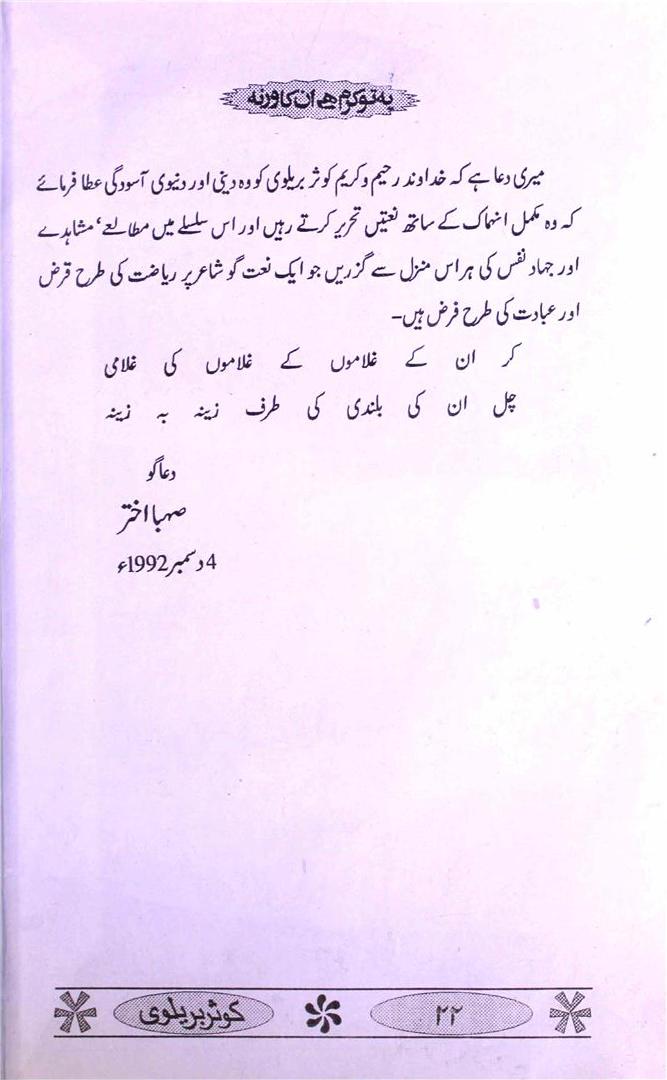 یہ تو کرم ھے ان کا ورنہ
میری دعا ہے کہ خداوند رحیم و کریم کوثر بریلوی کو وہ دینی اور دنیوی آسودگی عطا فرمائے
کہ وہ مکمل انہماک کے ساتھ نعتیں تحریر کرتے رہیں اور اس سلسلے میں مطالعے‘ مشاہدے
اور جہاد نفس کی ہر اس منزل سے گزریں جو ایک نعت گو شاعر پر ریاضت کی طرح قرض
اور عبادت کی طرح فرض ہیں۔
کر ان کے غلاموں کے غلاموں کی غلامی
چل ان کی بلندی کی طرف زینہ بہ زینہ
دعاگو
صہبا اختر
4 دسمبر 1992ء
کوثر بریلوی
۲۲